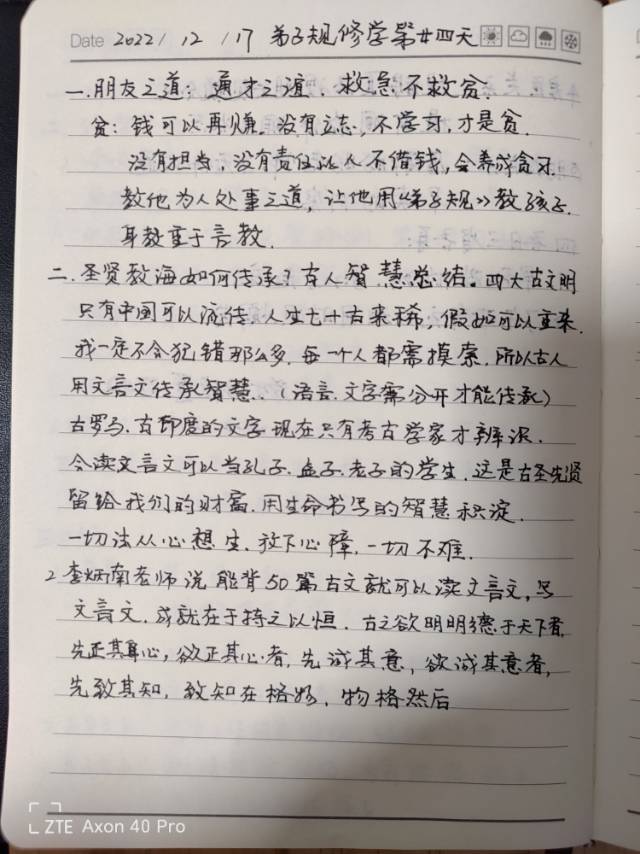 Date 2022/ 12 / 17 弟子规修学第廿四天
一.朋友之道: 通才之谊. 救急不救贫.
贫: 钱可以再赚. 没有立志, 不学习, 才是贫.
没有担当, 没有责任的人不借钱, 会养成贪习.
教他为人处事之道, 让他用《弟子规》教孩子.
身教重于言教.
二.圣贤教诲如何传承? 古人智慧总结. 四大古文明
只有中国可以流传. 人生七十古来稀, 假如可以重来.
我一定不会犯错那么多. 每一个人都需摸索. 所以古人
用文言文传承智慧. (语言.文字需分开才能传承)
古罗马.古印度的文字现在只有考古学家才辨识.
会读文言文可以当孔子.孟子.老子的学生. 这是古圣先贤
留给我们的财富. 用生命书写的智慧积淀.
一切法从心想生. 放下心障. 一切不难.
2.李炳南老师说 能背50篇古文就可以读文言文, 写
文言文. 成就在于持之以恒. 古之欲明明德于天下者,
先正其心, 欲正其心者, 先诚其意, 欲诚其意者,
先致其知, 致知在格物. 物格然后
ZTE Axon 40 Pro